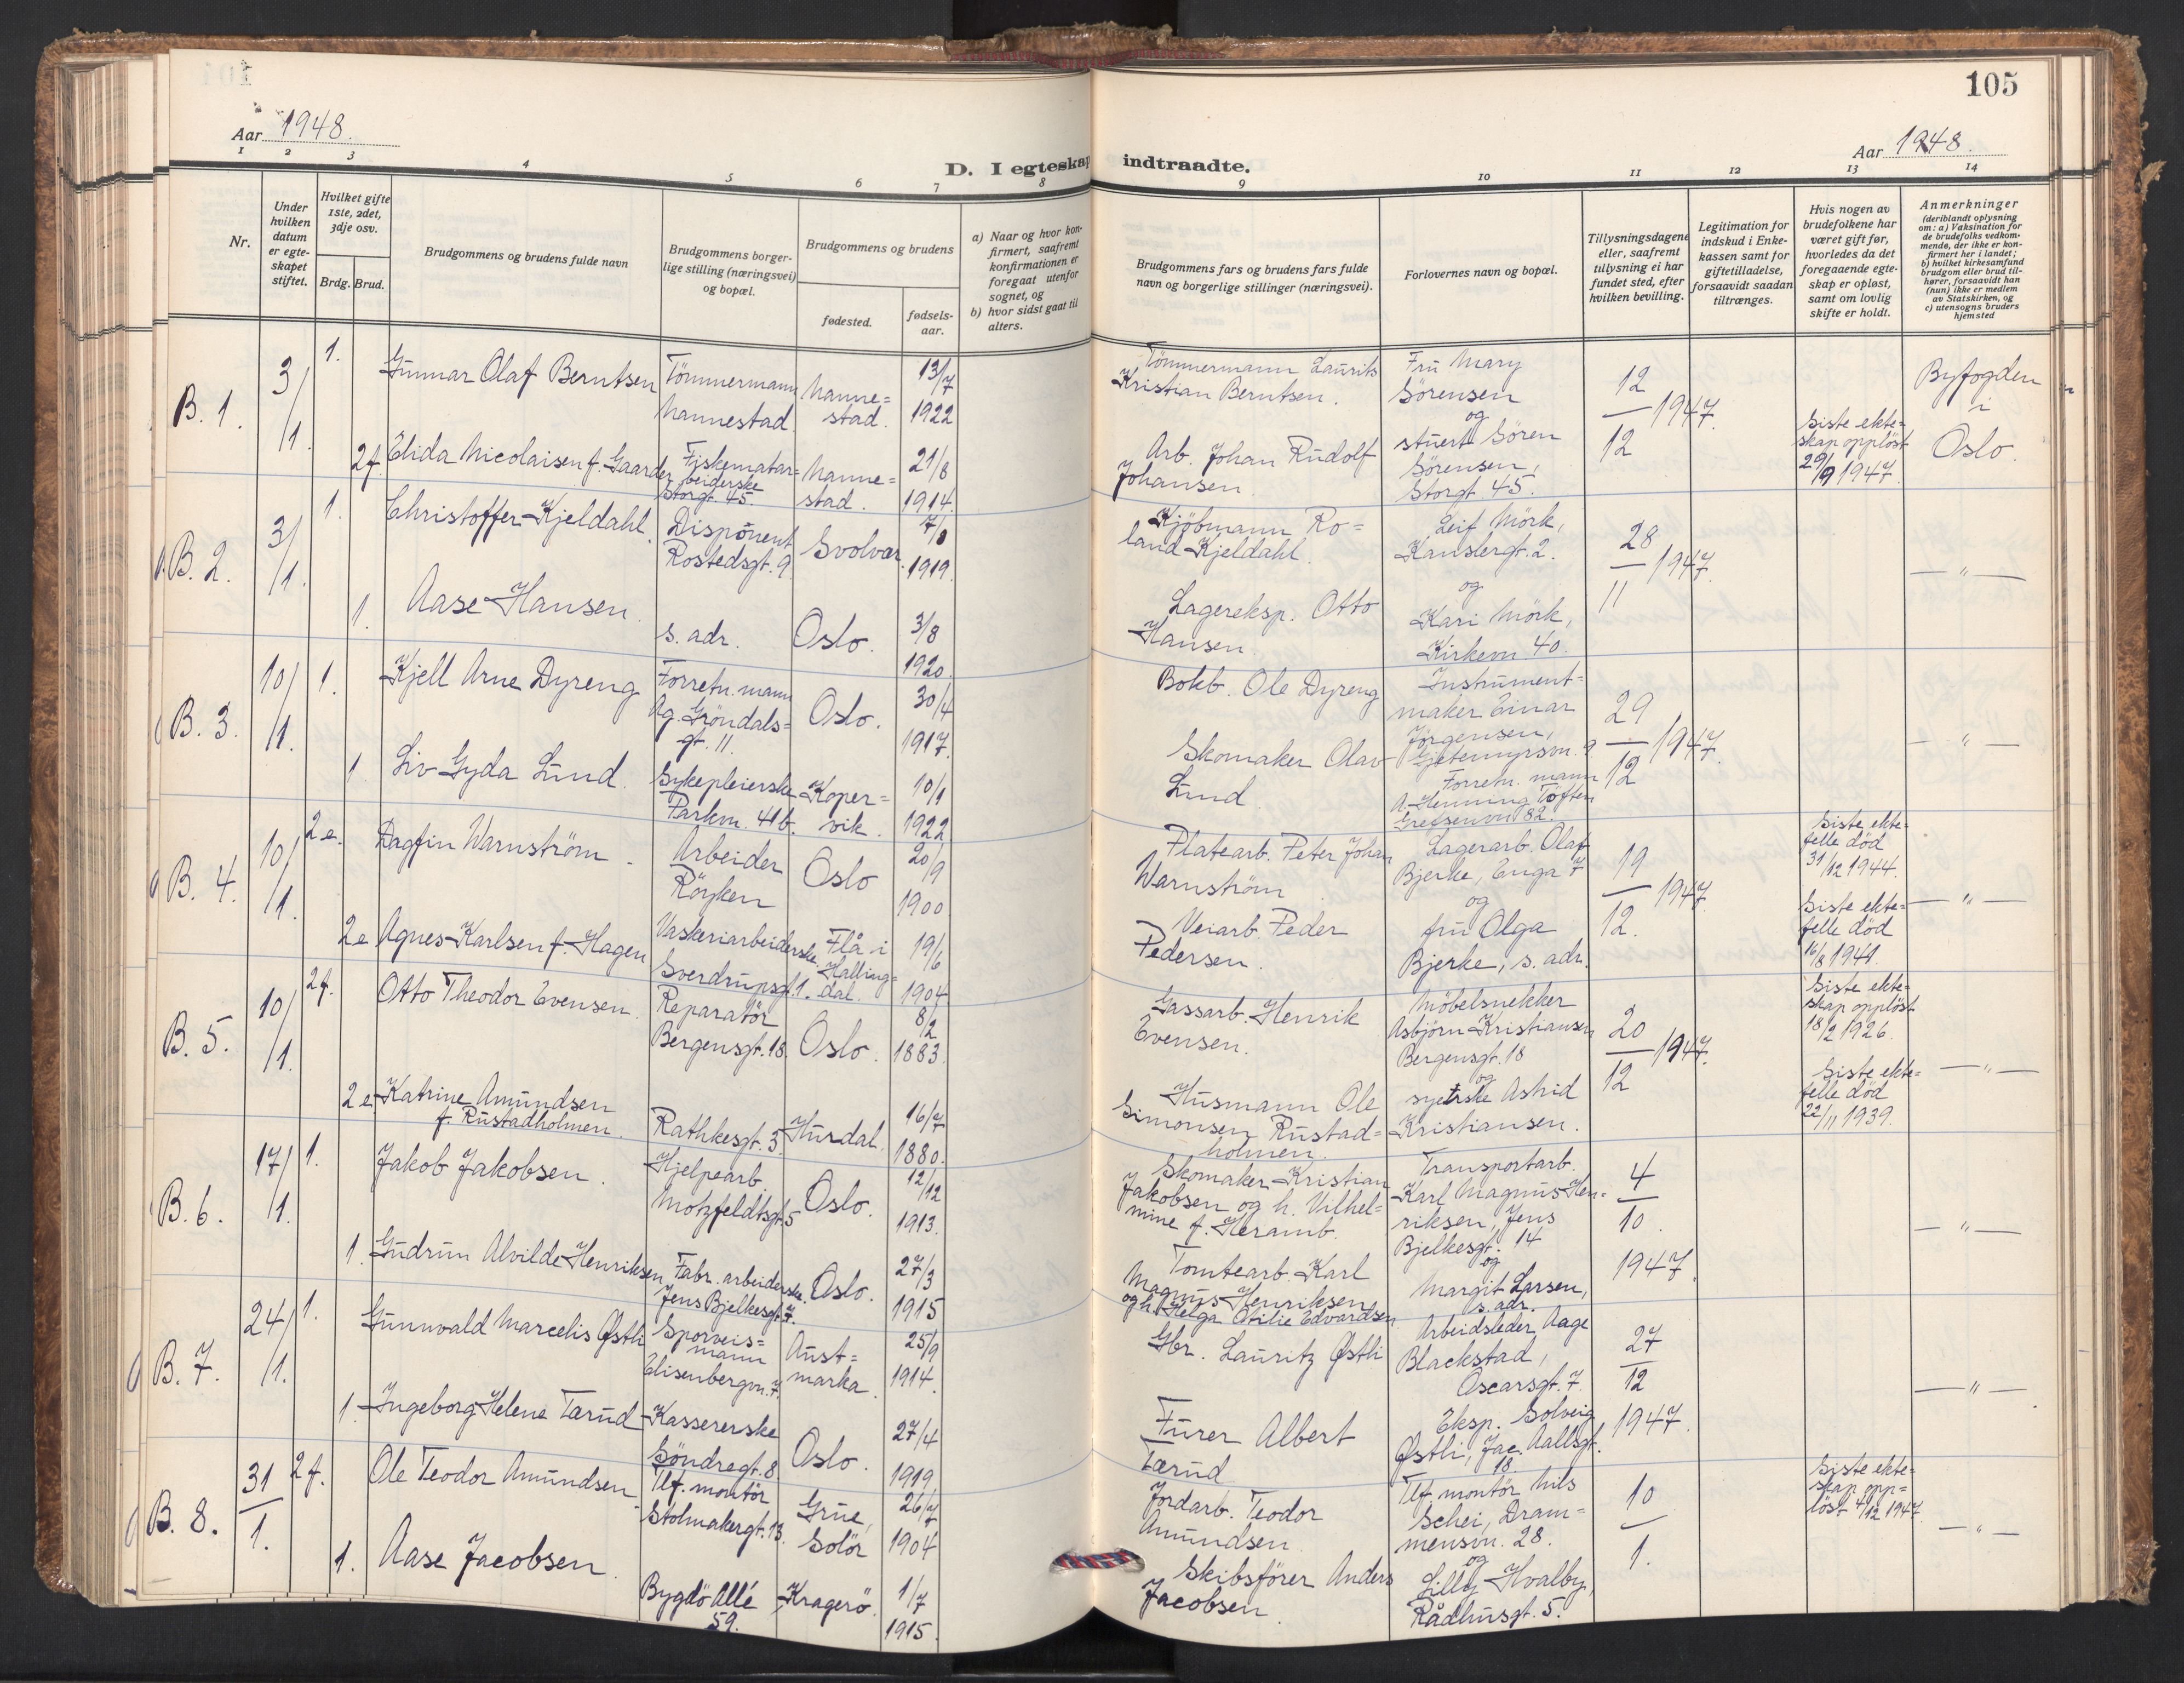 105
Aar 1948.
Aar 1948.
D. I egteskap indtraadte.
1 2 3 4 5 6 7 8 9 10 11 12 13 14
Nr.
Under
hvilken
datum
er egte-
skapet
stiftet.
Hvilket gifte
1ste, 2det,
3dje osv.
Brdg. Brud.
Brudgommens og brudens fulde navn
Brudgommens borger-
lige stilling (næringsvei)
og bopæl.
Brudgommens og brudens
fødested.
fødsels-
aar.
a) Naar og hvor kon-
firmert, saafremt
konfirmationen er
foregaat utenfor
sognet, og
b) hvor sidst gaat til
alters.
Brudgommens fars og brudens fars fulde
navn og borgerlige stillinger (næringsvei).
Forlovernes navn og bopæl.
Tillysningsdagene
eller, saafremt
tillysning ei har
fundet sted, efter
hvilken bevilling.
Legitimation for
indskud i Enke-
kassen samt for
giftetilladelse,
forsaavidt saadan
tiltrænges.
Hvis nogen av
brudefolkene har
været gift før,
hvorledes da det
foregaaende egte-
skap er opløst,
samt om lovlig
skifte er holdt.
Anmerkninger
(deriblandt oplysning
om: a) Vaksination for
de brudefolks vedkom-
mende, der ikke er kon-
firmert her i landet;
b) hvilket kirkesamfund
brudgom eller brud til-
hører, forsaavidt han
(hun) ikke er medlem
av Statskirken, og
c) utensogns bruders
hjemsted
B. 1.
3/
/1.
1.
Gunnar Olaf Berntsen
Tömmermann
Nannestad.
Nanne=
stad.
13/7
1922
Tömmermann Laurits
Kristian Berntsen.
Fru Mary
Sörensen
og
stuert Sören
Sörensen,
Storgt 45.
12
— 1947.
12
Byfogden
i
Oslo.
2f.
Elida Nicolaisen f. Gaarder
Fiskematar=
beiderske
Storgt. 45.
Nanne=
stad.
21/8
1914.
Arb. Johan Rudolf
Johansen.
Siste ekte=
skap opplöst
29/9 1947.
B. 2.
3/
/1.
1.
Christoffer Kjeldahl.
Disponent
Rostedsgt. 9.
Svolvær.
7/8
1919.
Kjöbmann Ro=
land Kjeldahl.
Leif Mörk,
Kanslergt. 2.
og
Kari Mörk,
Kirkevn. 40.
28
— 1947.
11
— " —
1.
Aase Hansen.
s. adr.
Oslo.
3/8
1920.
Lagereksp. Otto
Hansen.
B. 3.
10/
/1.
1.
Kjell Arne Dyreng
Forretn. mann
Ag. Gröndals=
gt. 11.
Oslo.
30/4
1917.
Bokb. Ole Dyreng
Instrument=
maker Einar
Jörgensen,
Gjetemyrsvn. 9
Forretn. mann
A. Henning Toften
Grefsenvn 82.
29
— 1947.
12
— " —
1
Liv Gyda Lund.
Sykepleierske
Parkvn. 41b.
Koper=
vik.
10/1
1922
Skomaker Olav
Lund
B. 4.
10/
/1.
2e.
Dagfin Warnström.
Arbeider
Röyken
Oslo
20/9
1900.
Platearb. Peter Johan
Warnström
Lagerarb. Olaf
Bjerke, Enga 7
og
fru Olga
Bjerke, s. adr.
19
— 1947.
12.
Siste ekte=
felle död
31/12 1944.
— " —
2e
Agnes Karlsen f. Hagen
Vaskeriarbeiderske.
Sverdrupsgt. 1.
Flå i
Halling=
dal.
19/6
1904
Veiarb. Peder
Pedersen.
Siste ekte=
felle död
16/8 1941.
B. 5.
10/
/1.
2f.
Otto Theodor Evensen.
Reparatör
Bergensgt. 18.
Oslo.
8/2
1883.
Gassarb. Henrik
Evensen.
Möbelsnekker
Asbjörn Kristiansen
Bergensgt. 18
og
syerske Astrid
Kristiansen.
20
— 1947.
12
Siste ekte=
skap opplöst
18/2 1926.
— " —
2e.
Katrine Amundsen
f. Rustadholmen.
Rathkesgt. 3
Hurdal.
16/7
1880.
Husmann Ole
Simonsen Rustad=
holmen.
Siste ekte=
felle död
22/11 1939.
B. 6.
17/
/1.
1.
Jakob Jakobsen.
Hjelpearb.
Motzfeldtsgt. 5
Oslo.
12/12
1913.
Skomaker Kristian
Jakobsen og h. Vilhel=
mine f. Keramb.
Transportarb.
Karl Magnus Hen=
riksen, Jens
Bjelkesgt. 14
og
Margit Larsen,
s. adr.
4
—
10.
1947.
— " —
1.
Gudrun Alvilde Henriksen
Fabr. arbeiderske.
Jens Bjelkesgt. 7.
Oslo.
27/3
1915
Tomtearb. Karl
Magnus Henriksen
og h. Helga Otilie Edvardsen
B. 7.
24/
/1.
1.
Gunnvald Marcelis Østli
Sporveis=
mann
Elisenbergvn. 7.
Aust=
marka.
25/9
1914.
Gbr. Lauritz Østli
Arbeidsleder Aage
Blackstad,
Oscarsgt. 7.
Eksp. Solveig
Østli, Jac. Aallsgt.
18.
27
—
12
1947.
— " —
1.
Ingeborg Helene Tærud
Kassererske
Söndregt. 8.
Oslo.
27/4
1919.
Furer Albert
Tærud
B. 8.
31
—
1.
2f.
Ole Teodor Amundsen.
Tlf. montör
Stolmakergt. 13.
Grue,
Solör
26/7
1904
Jordarb. Teodor
Amundsen.
Tlf. montör Nils
Schei, Dram=
mensvn. 28.
og
Lilly Hvalby,
Rådhusgt. 5.
10
—
1.
Siste ekte=
skap opp=
löst 4/12 1947.
— " —
1.
Aase Jacobsen.
Bygdö Allé
59.
Kragerö.
1/7
1915.
Skibsförer Anders
Jacobsen.